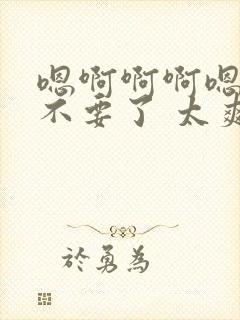 嗯啊啊啊嗯
不要了 太爽
於勇為